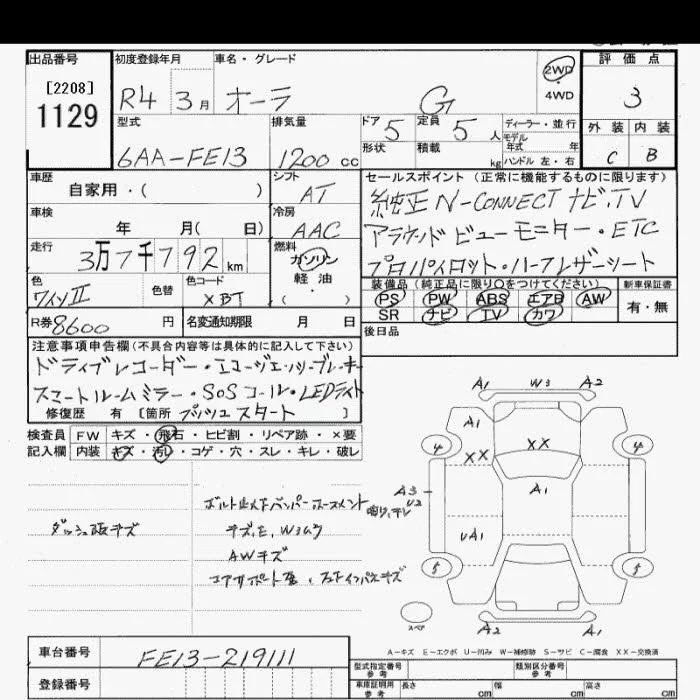 出品番号 初度登録年月 車名・グレード 評価点
[2208]
1129
R4 3月 オーラ G 2WD ・ 4WD 3
型式 排気量 ドア 5 定員 5人 ディーラー・並行 外装 内装
6AA-FE13 1200cc 形状 積載 kg モデル年式 年 ハンドル 左・右 C B
車歴 シフト セールスポイント (正常に機能するものに限ります)
自家用・( ) AT 純正 N-CONNECT ナビ.TV
車検 冷房
年 月( 日) AAC アラウンドビューモニター・ETC
走行 燃料
3万7千792km ガソリン プロパイロット・ハーフレザーシート
軽油
・( )
色 色替 色コード 装備品 (純正品に限り○をつけてください) 新車保証書
ワインII XBT PS PW ABS エアB AW 有・無
SR ナビ TV カワ
R券 8600円 名変通知期限 月 日 後日品
注意事項申告欄(不具合内容等は具体的に記入して下さい)
ドライブレコーダー・エマージェンシーブレーキ
スマートルームミラー・SOSコール・LEDライト
修復歴 有 [箇所 プッシュスタート ]
検査員 FW キズ・飛石・ヒビ割・リペア跡・×要
記入欄 内装 キズ・汚レ・コゲ・穴・スレ・キレ・破レ
A1 W3 A2
A1
4 XX 4
XX
A1
A3 U2
UA1
5 5
スペア
A2 A1
ダッシュ
キズ
AWキズ
A-キズ E-エクボ U-凹み W-補修跡 S-サビ C-腐食 XX-交換済
車台番号 FE13-219111
登録番号
型式指定番号 参考 類別区分番号 参考
車庫証明用 参考 長さ cm 幅 cm 高さ cm